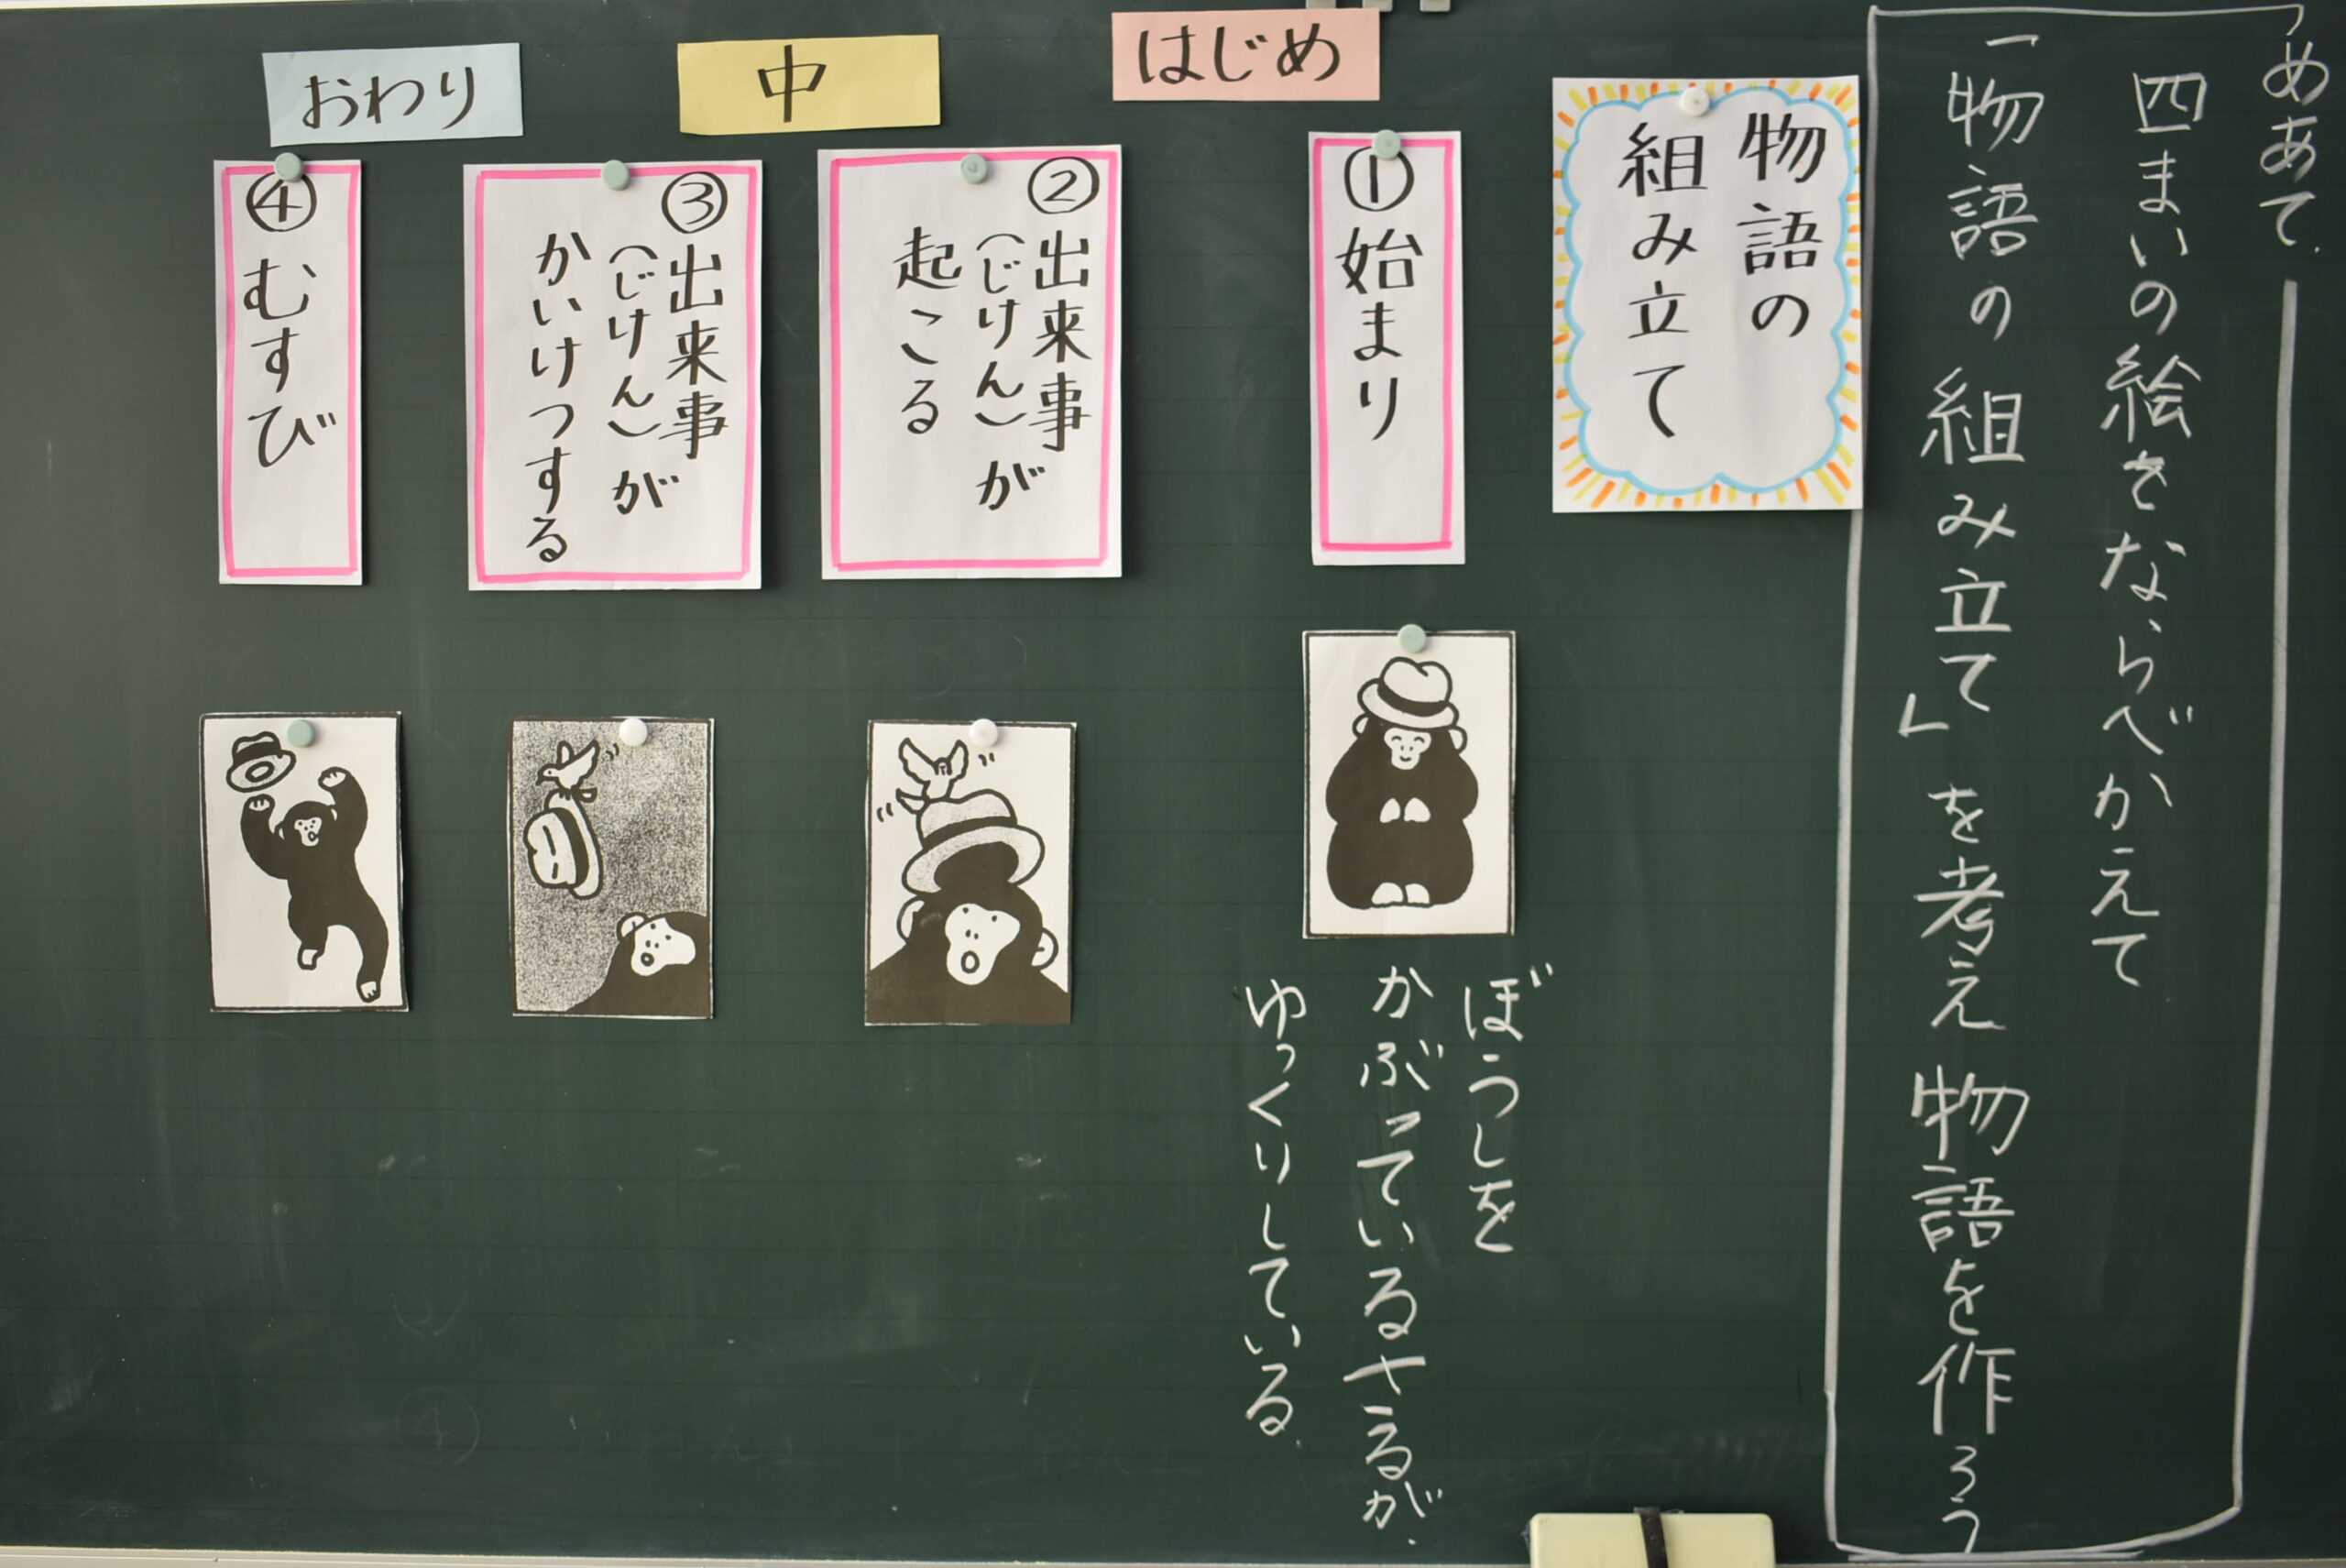 めあて
四まいの絵をならべかえて
「物語の組み立て」を考え物語を作ろう
物語の
組み立て
はじめ
①始まり
ぼうしを
かぶっているさるが、
ゆっくりしている。
中
②出来事
(じけん)が
起こる
③出来事
(じけん)が
かいけつする
おわり
④むすび